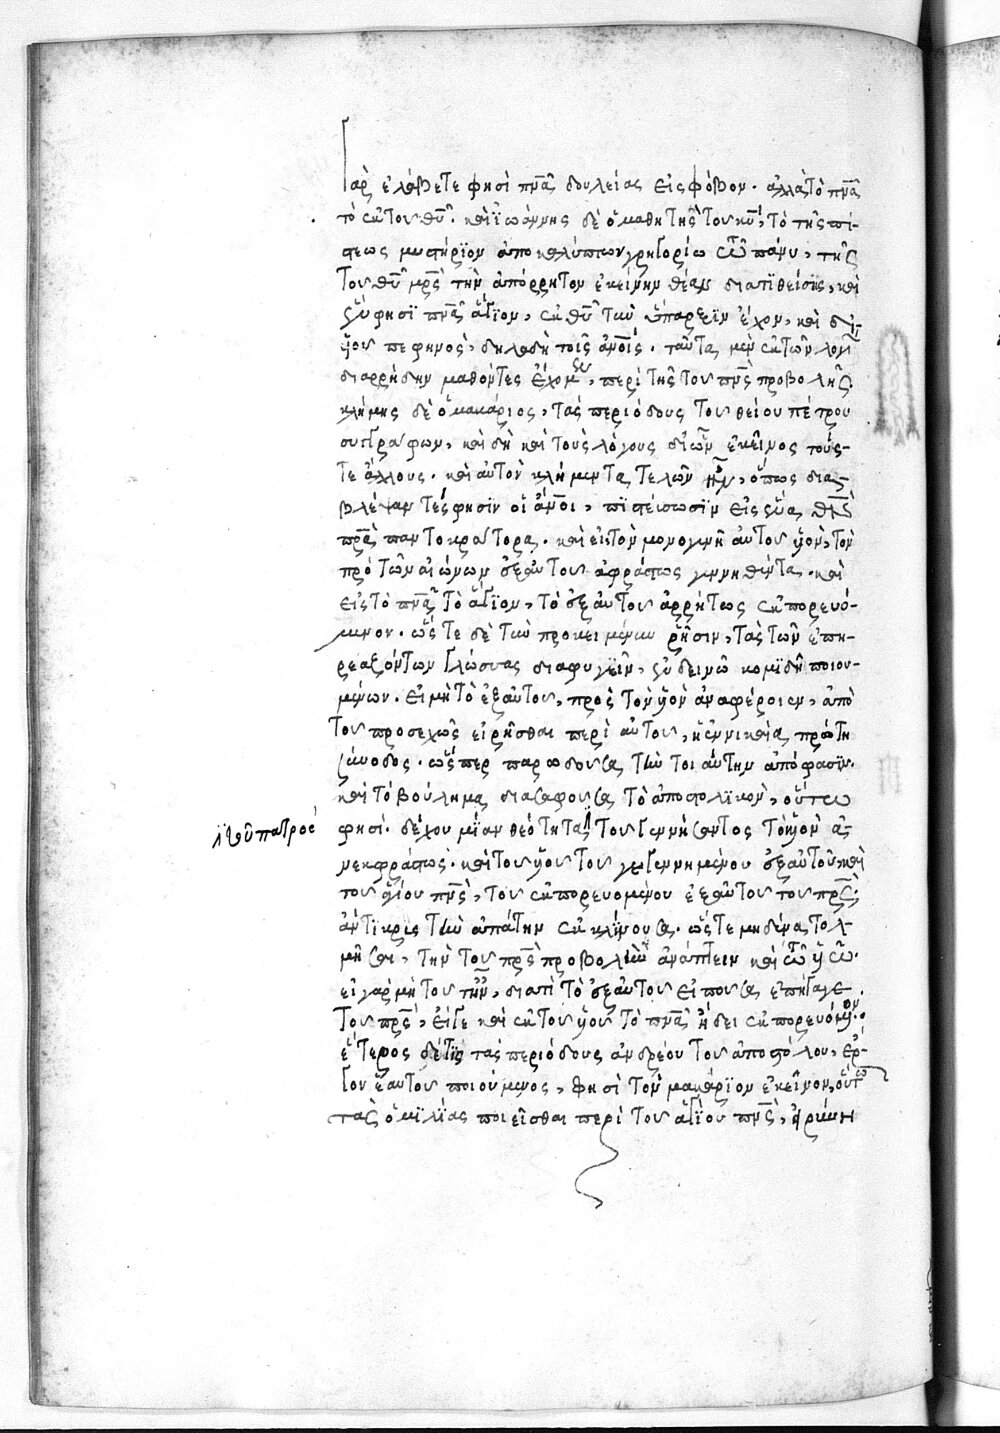 γὰρ ἐλάβετε φησὶ πνα δουλείας εἰς φόβον. ἀλλὰ τὸ πνα
τὸ ἐκ τοῦ θυ. καὶ ἰωάννης δὲ ὁ μαθητὴς τοῦ κυ, τὸ τῆς πί-
στεως μυστήριον ἀποκαλύπτων γρηγορίω τῶ πάνυ, τῆς
τοῦ θυ μρς τὴν ἀπόρρητον ἐκείνην θέαν διατιθείσης, καὶ
φησὶ πνα ἅγιον, ἐκ θυ τὴν ὕπαρξιν ἔχον, καὶ δι
υἱοῦ πεφηνὸς, δηλαδὴ τοῖς ἀνοις. ταῦτα μὲν ἐκ τῶν
διαρρήδην μαθόντες ἔχομεν, περὶ τῆς τοῦ πνς προβολῆς
κλήμης δὲ ὁ μακάριος, τὰς περιόδους τοῦ θείου πέτρου
συγγράφων, καὶ δὴ καὶ τοὺς λόγους δι' ὧν ἐκεῖνος τούς-
τε ἄλλους. καὶ αὐτὸν κλήμεντα τελῶν ἦν, ὅπως δια-
βλέψαντές φησιν οἱ ἄνοι, πιστεύσωσιν εἰς ἕνα θν
πρα παντοκράτορα. καὶ εἰς τὸν μονογενῆ αὐτοῦ υἱὸν, τὸν
πρὸ τῶν αἰώνων ἐξ αὐτοῦ ἀφράστως γεννηθέντα. καὶ
εἰς τὸ πνα τὸ ἅγιον, τὸ ἐξ αὐτοῦ ἀρρήτως ἐκπορευό-
μενον. ὥς τε δὲ τὴν προκειμένην ῥῆσιν, τὰς τῶν ἐπη-
ρεαζόντων γλώσσας διαφυγεῖν, ἐν δεινῶ κομιδῆ ποιου-
μένων. εἰ μὴ τὸ ἐξ αὐτοῦ, πρὸς τὸν υἱὸν ἀναφέροιεν, ἀπὸ
τοῦ προσεχῶς εἰρῆσθαι περὶ αὐτοῦ, ἡ ἐν νικαία πρώτη
σύνοδος. ὥσπερ παρωδοῦσα τὴν τοιαύτην ἀπόφασιν.
καὶ τὸ βούλημα διασαφοῦσα τὸ ἀποστολικὸν, οὕτω
φησί. δέχου μίαν θεότητα τοῦ γεννήσαντος τὸν υἱὸν ἀ-
νεκφράστως. καὶ τοῦ υἱοῦ τοῦ γεγεννημένου ἐξ αὐτοῦ καὶ
τοῦ ἁγίου πνς, τοῦ ἐκπορευομένου ἐξ αὐτοῦ τοῦ πρς.
ἄντικρις τὴν ἀπάτην ἐκκλίνουσα. ὥς τε μηδένα τολ-
μῆσαι, τὴν τοῦ πρς προβολὴν ἀνάπτειν καὶ τῶ υἱῶ.
εἰ γὰρ μὴ τοῦτ' ἦν, διατί τὸ ἐξ αὐτοῦ εἰποῦσα ἐπήγαγε
τοῦ πρς, εἴγε καὶ ἐκ τοῦ υἱοῦ τὸ πνα ἤδει ἐκπορευόμενον.
ἕτερος δέτις τὰς περιόδους ἀνδρέου τοῦ ἀποστόλου, ἔρ-
γον ἑαυτοῦ ποιούμενος, φησὶ τὸν μακάριον ἐκεῖνον, οὕτω
τὰς ὁμιλίας ποιεῖσθαι περὶ τοῦ ἁγίου πνς,